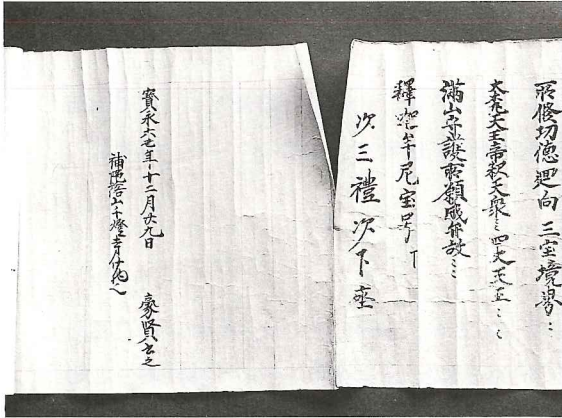 所修功德廻向三宝境界ミ
大梵天王帝釈天衆ミ四大天王ミミ
満山守護所願成弁故ミミ
釋迦牟尼宝号丁
次三禮次下座
寳永六丑年十二月廿九日
豪賢書之
補陀落山千燈寺什物也